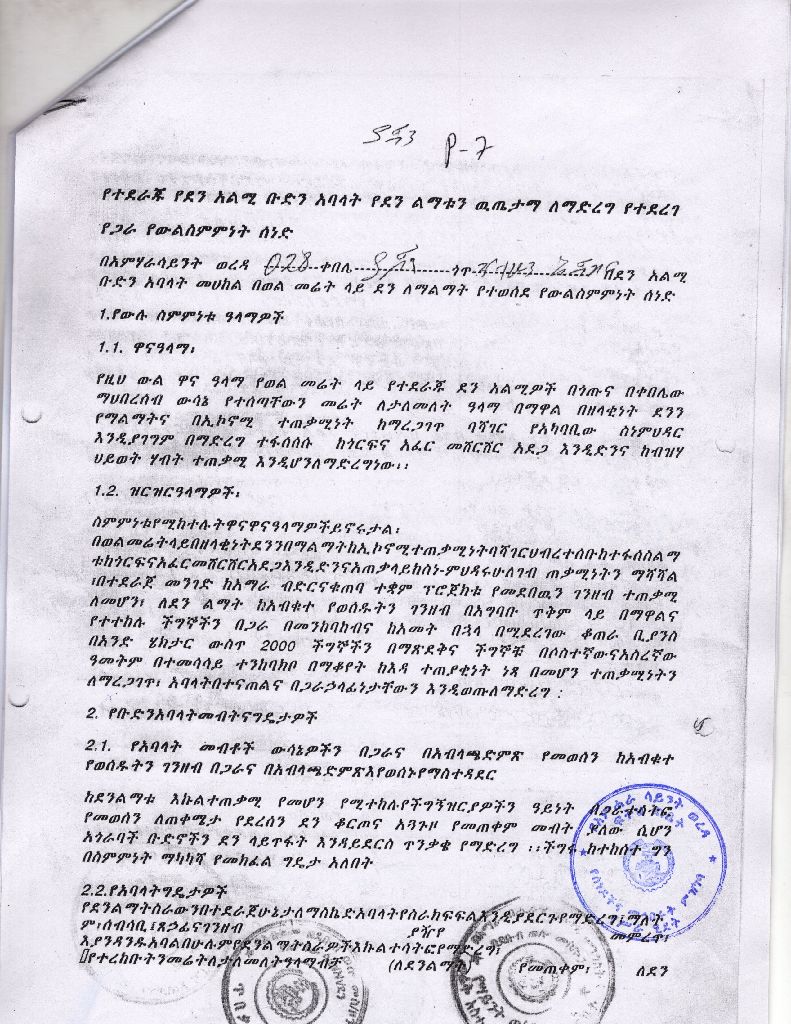 P-7
የተደራጁ የደን አልሚ ቡድን አባላት የደን ልማቱን ዉጤታማ ለማድረግ የተደረገ
የጋራ የውልስምምነት ሰነድ
በአምሃራሳይንት ወረዳ 028 ቀበሌ ጎጥ የደን አልሚ
ቡድን አባላት መሀከል በወል መሬት ላይ ደን ለማልማት የተወሰደ የውልስምምነት ሰነድ
1.የውሉ ስምምነቱ ዓላማዎች
1.1. ዋናዓላማ፡
የዚህ ውል ዋና ዓላማ የወል መሬት ላይ የተደራጁ ደን አልሚዎች በጎጡና በቀበሌው
ማህበረሰብ ውሳኔ የተሰጣቸውን መሬት ለታለመለት ዓላማ በማዋል በዘላቂነት ደንን
የማልማትና በኢኮኖሚ ተጠቃሚነት ከማረጋገጥ ባሻገር የአካባቢው ስነምህዳር
እንዲያገግም በማድረግ ተፋሰሱ ከጎርፍና አፈር መሸርሸር አደጋ እንዲድንና ከብዝሃ
ህይወት ሃብት ተጠቃሚ እንዲሆንለማድረግነው፡፡
1.2. ዝርዝርዓላማዎች፡
ስምምነቱየሚከተሉትዋናዋናዓላማዎችይኖሩታል፡
በወልመሬትላይበዘላቂነትደንንበማልማትከኢኮኖሚተጠቃሚነትባሻገርህብረተሰቡከተፋሰስልማ
ቱከጎርፍናአፈርመሸርሸርአደጋእንዲድንናአጠቃላይከስነ-ምህዳሩሁለገብ ጠቃሚነትን ማሻሻል
፣በተደራጀ መንገድ ከአማራ ብድርናቁጠባ ተቋም ፕሮጀክቱ የመደበዉን ገንዘብ ተጠቃሚ
ለመሆን፣ ለደን ልማት ከአብቁተ የወሰዱትን ገንዘብ በአግባቡ ጥቅም ላይ በማዋልና
የተተከሉ ችግኞችን በጋራ በመንከባከብና ከአመት በኋላ በሚደረገው ቆጠራ ቢያንስ
በአንድ ሄክታር ውስጥ 2000 ችግኞችን በማጽደቅና ችግኞቹ በሶስተኛውናአስረኛው
ዓመትም በተመሳሳይ ተንከባክቦ በማቆየት ከእዳ ተጠያቂነት ነጻ በመሆን ተጠቃሚነትን
ለማረጋገጥ፣ አባላትበተናጠልና በጋራኃላፊነታቸውን እንዲወጡለማድረግ ፡
2. የቡድንአባላትመብትናግዴታዎች
2.1. የአባላት መብቶች ውሳኔዎችን በጋራና በአብላጫድምጽ የመወሰን ከአብቁተ
የወሰዱትን ገንዘብ በጋራና በአብላጫድምጽእየወሰኑየማስተዳደር
ከደንልማቱ እኩልተጠቃሚ የመሆን የሚተከሉየችግኝዝርያዎችን ዓይነት በጋራተሳትፎ
የመወሰን ለጠቀሜታ የደረሰን ደን ቆርጦና አጓጉዞ የመጠቀም መብት ያለው ሲሆን
አጎራባች ቡድኖችን ደን ላይጥፋት እንዳይደርስ ጥንቃቄ የማድረግ ፡፡ችግሩ ከተከሰተ ግን
በስምምነት ማካካሻ የመክፈል ግዴታ አለበት
2.2.የአባላትግዴታዎች
የደንልማትስራውንበተደራጀሁኔታለማስኬድአባላትየስራክፍፍልእንዲያደርጉየማድረግ፣ማለት
ም፣ሰብሳቢ፣ጸኃፊናገንዘብ ያዥየ መምረጥ፣
እያንዳንዱአባልበሁሉምየደንልማትስራዎችእኩልተሳትፎየማድረግ፣
የተረከቡትንመሬትለታለመለትዓላማብቻ (ለደንልማት) የመጠቀም፣ ለደን